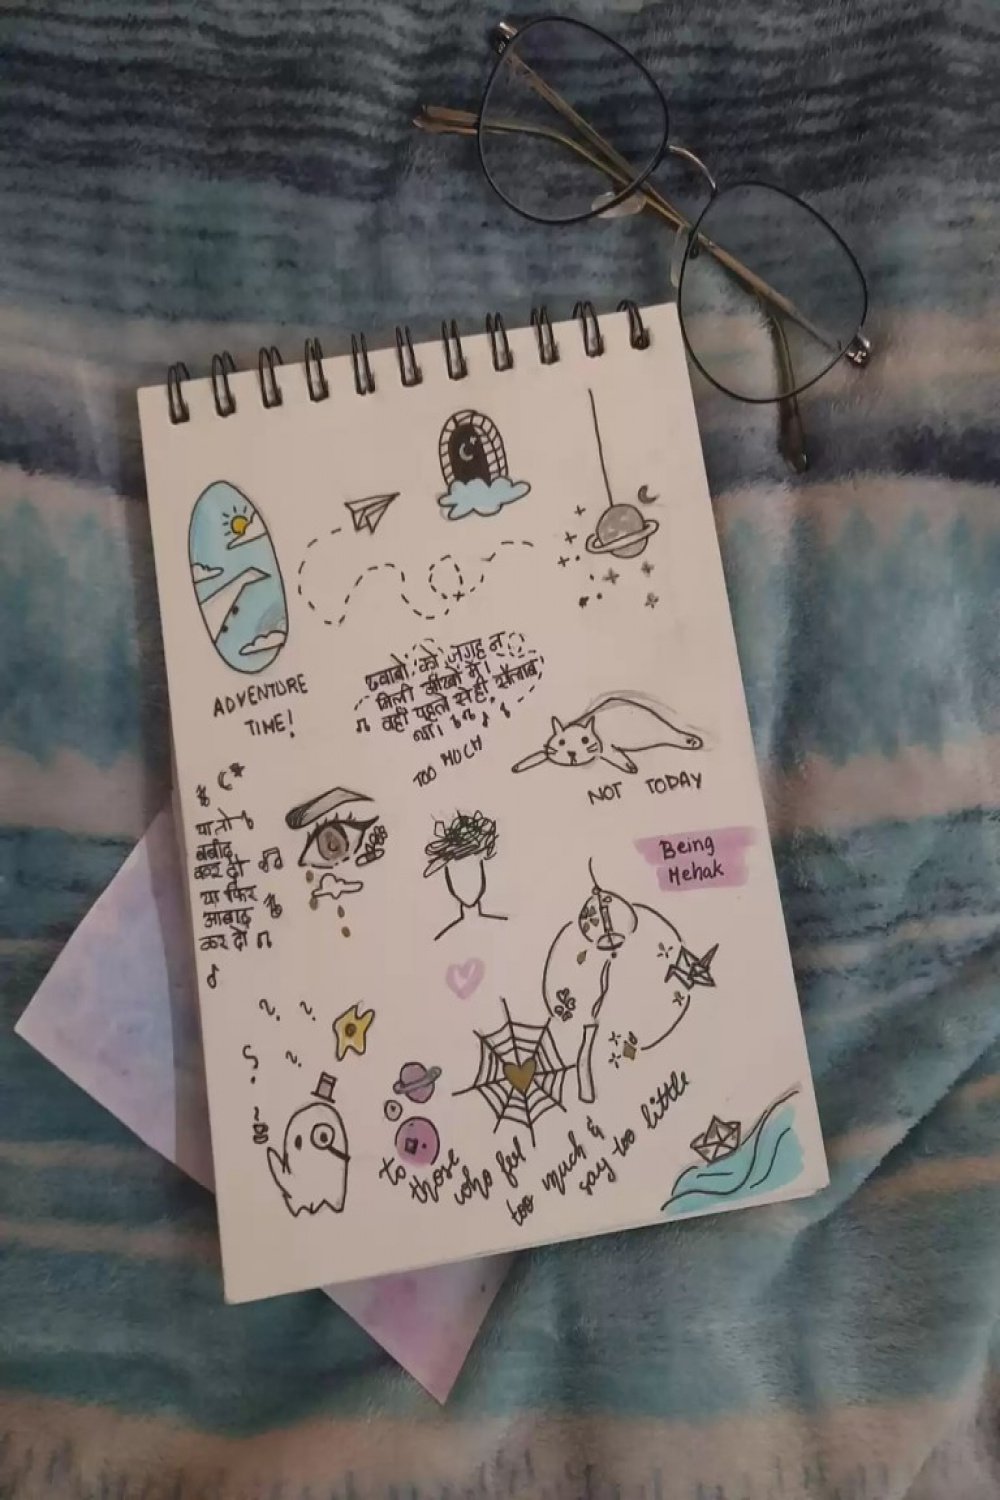 ADVENTURE
TIME!
ख्वाबों को जगह न
मिली आँखों में।
वहाँ पहले से ही सैलाब
था।
TOO MUCH
NOT TODAY
या तो
बर्बाद
कर दो
या फिर
आबाद
कर दो
Being
Mehak
to
those
who feel
too much &
say too little